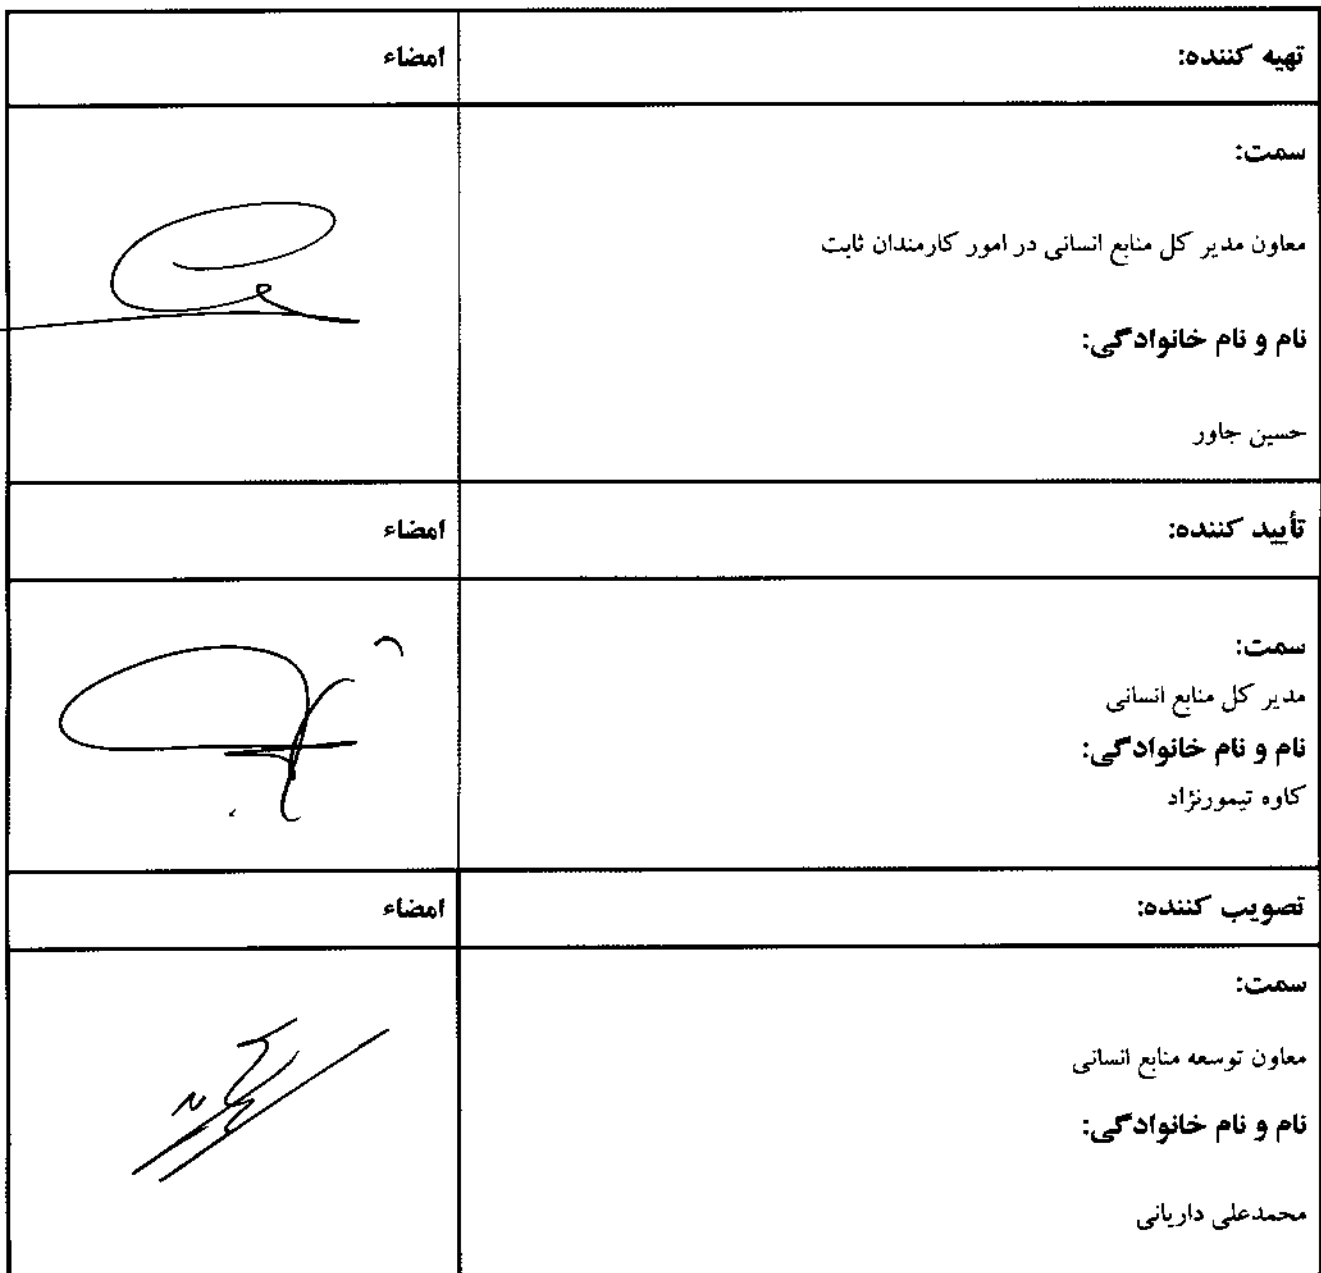 تهیه کننده:
امضاء
سمت:
معاون مدیر کل منابع انسانی در امور کارمندان ثابت
نام و نام خانوادگی:
حسین جاور
تأیید کننده:
امضاء
سمت:
مدیر کل منابع انسانی
نام و نام خانوادگی:
کاوه تیمورنژاد
تصویب کننده:
امضاء
سمت:
معاون توسعه منابع انسانی
نام و نام خانوادگی:
محمدعلی داریانی